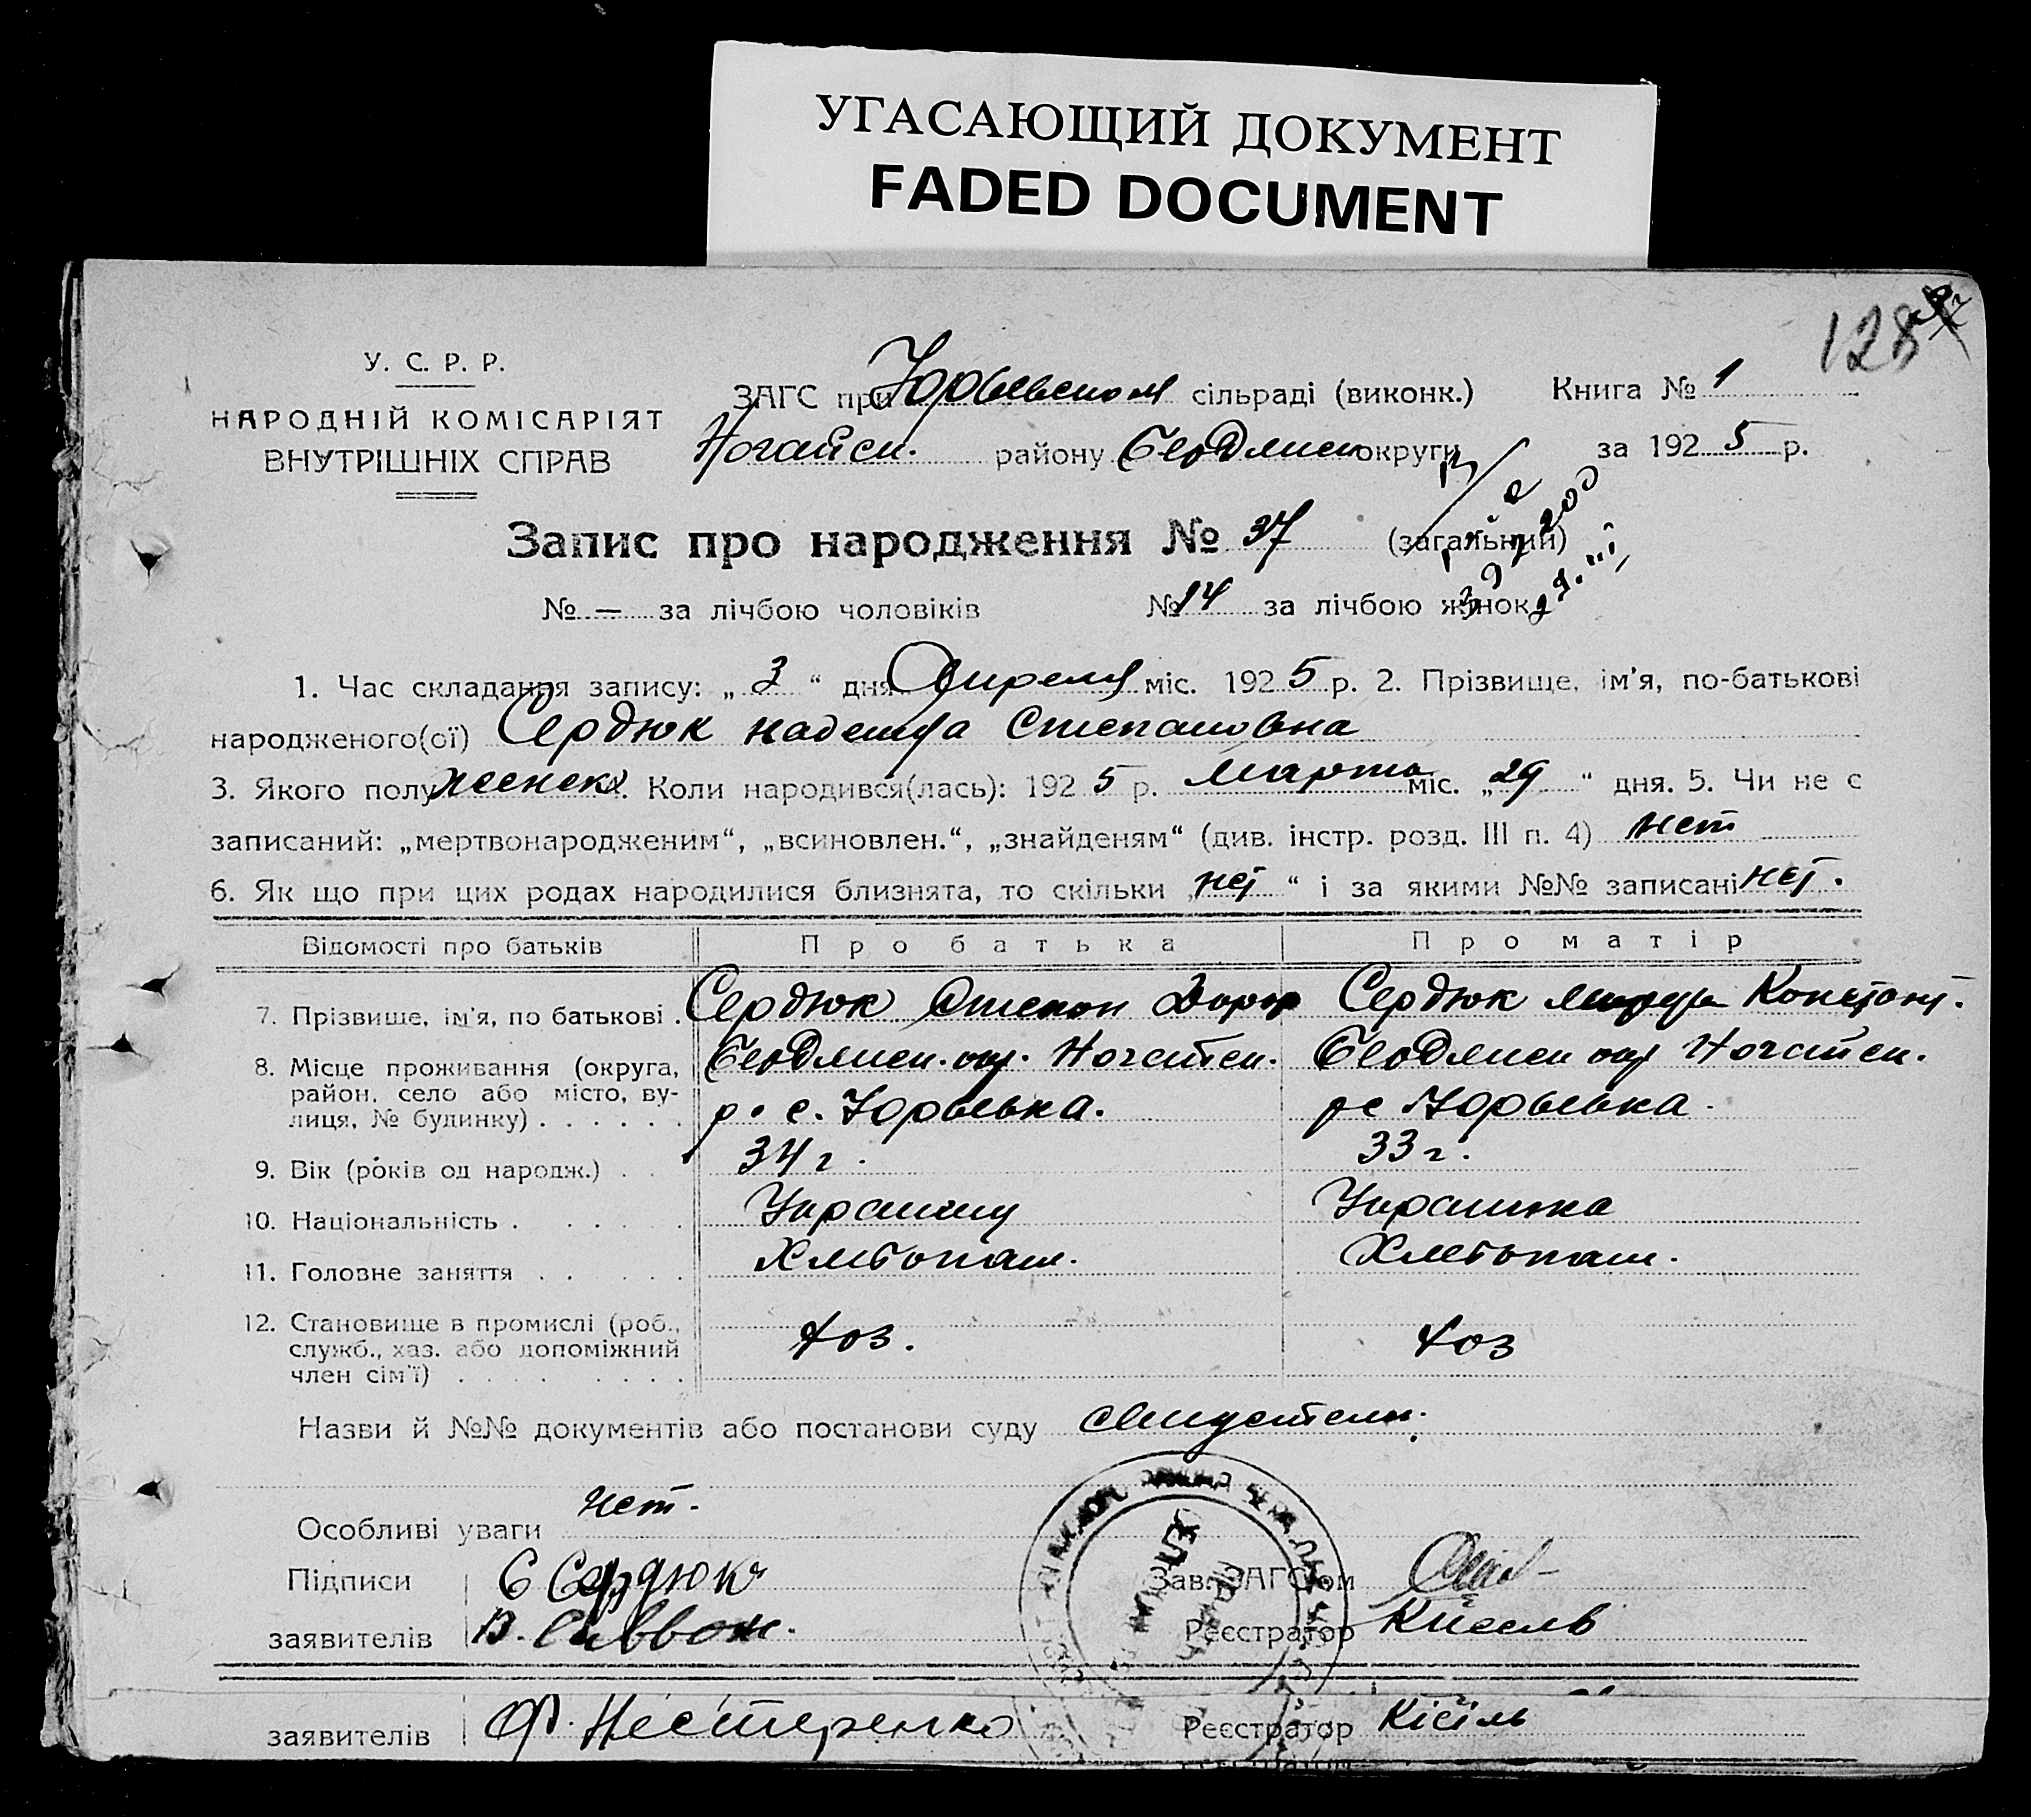 УГАСАЮЩИЙ ДОКУМЕНТ
FADED DOCUMENT
128
У. С. Р. Р.
НАРОДНІЙ КОМІСАРІЯТ
ВНУТРІШНІХ СПРАВ
ЗАГС при Юрьевском сільраді (виконк.) Книга № 1
Ногайск. району Бердянск округи за 1925 р.
Запис про народження № 37 (загальний)
№ — за лічбою чоловіків № 14 за лічбою жінок
1. Час складання запису: „ 3 “ дня Апреля міс. 1925 р. 2. Прізвище, ім'я, по-батькові
народженого(ої) Сердюк Надежда Степановна
3. Якого полу женск. Коли народився(лась): 1925 р. Марта міс. „29 “ дня. 5. Чи не є
записаний: „мертвонародженим“, „всиновлен.“, „знайденям“ (див. інстр. розд. III п. 4) нет
6. Як що при цих родах народилися близнята, то скільки „нет “ і за якими №№ записані нет.
Відомості про батьків Про батька Про матір
7. Прізвище, ім'я, по батькові . Сердюк Степан Сердюк Констант.
8. Місце проживання (округа, Бердянск. окр. Ногайск. Бердянск окр Ногайск.
район, село або місто, ву-
лиця, № будинку) . . . . . . р. с. Юрьевка. р с Юрьевка.
9. Вік (років од народж.) . . 34 г. 33 г.
10. Національність . . . . . Украинец Украинка
11. Головне заняття . . . . . Хлебопаш. Хлебопаш.
12. Становище в промислі (роб.,
служб., хаз. або допоміжний хоз. хоз
член сім'ї) . . . . . . . .
Назви й №№ документів або постанови суду
Особливі уваги нет.
Підписи С Сердюк Зав. ЗАГС'ом
заявителів В. Реєстратор Кисель
заявителів Ф. Нестеренко Реєстратор Кісіль